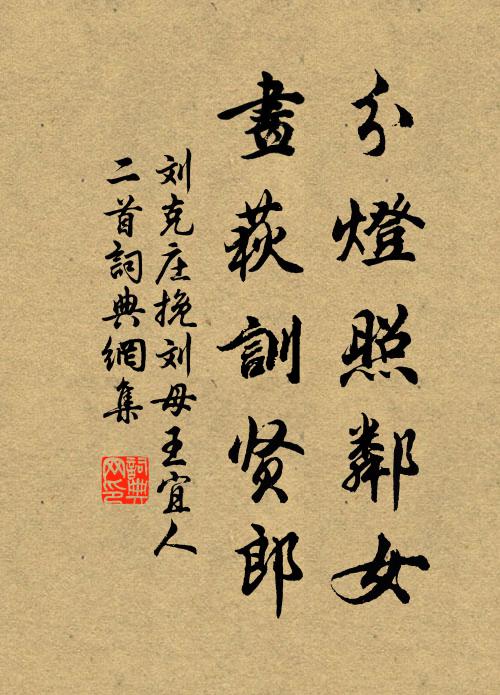 分燈照鄰女
畫荻訓贤郎
刘克庄挽刘母王宜人
二首詞典網集
詞典网印